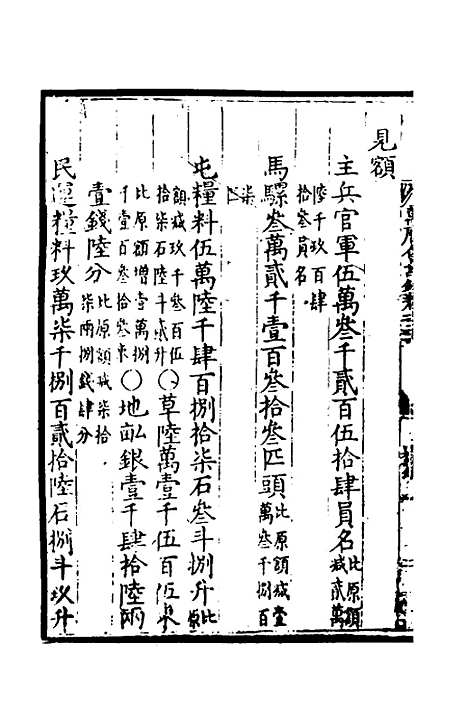 見額
主兵官軍伍萬叁千貳百伍拾肆員名比原額減貳萬
陸千玖百肆
拾叁員名
馬騾叁萬貳千壹百叁拾叁匹頭比原額減壹萬叁千捌百
柒
屯糧料伍萬陸千肆百捌拾柒石叁斗捌升比原
額減玖千叁百伍
拾柒石陸斗貳升
〇草陸萬壹千伍百伍束
比原額增壹萬捌
千壹百叁拾叁束
〇地畝銀壹千肆拾陸兩
壹錢陸分比原額減柒拾柒兩捌錢肆分
民運糧料玖萬柒千捌百貳拾陸石捌斗玖升